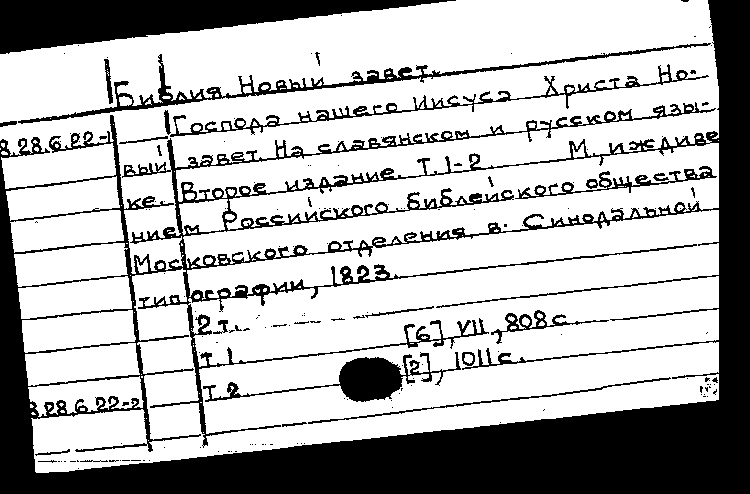 Библия. Новый завет.
Господа нашего Иисуса Христа Но-
8.28.6.22-1
вый завет. На славянском и русском язы-
ке. Второе издание. Т.1-2. М., иждиве
нием Российского библейского общества
Московского отделения, в Синодальной
типографии, 1823.
2 т.
Т.1. [6], VII, 808 с.
Т.2 [2], 1011 с.
8.28.6.22-2